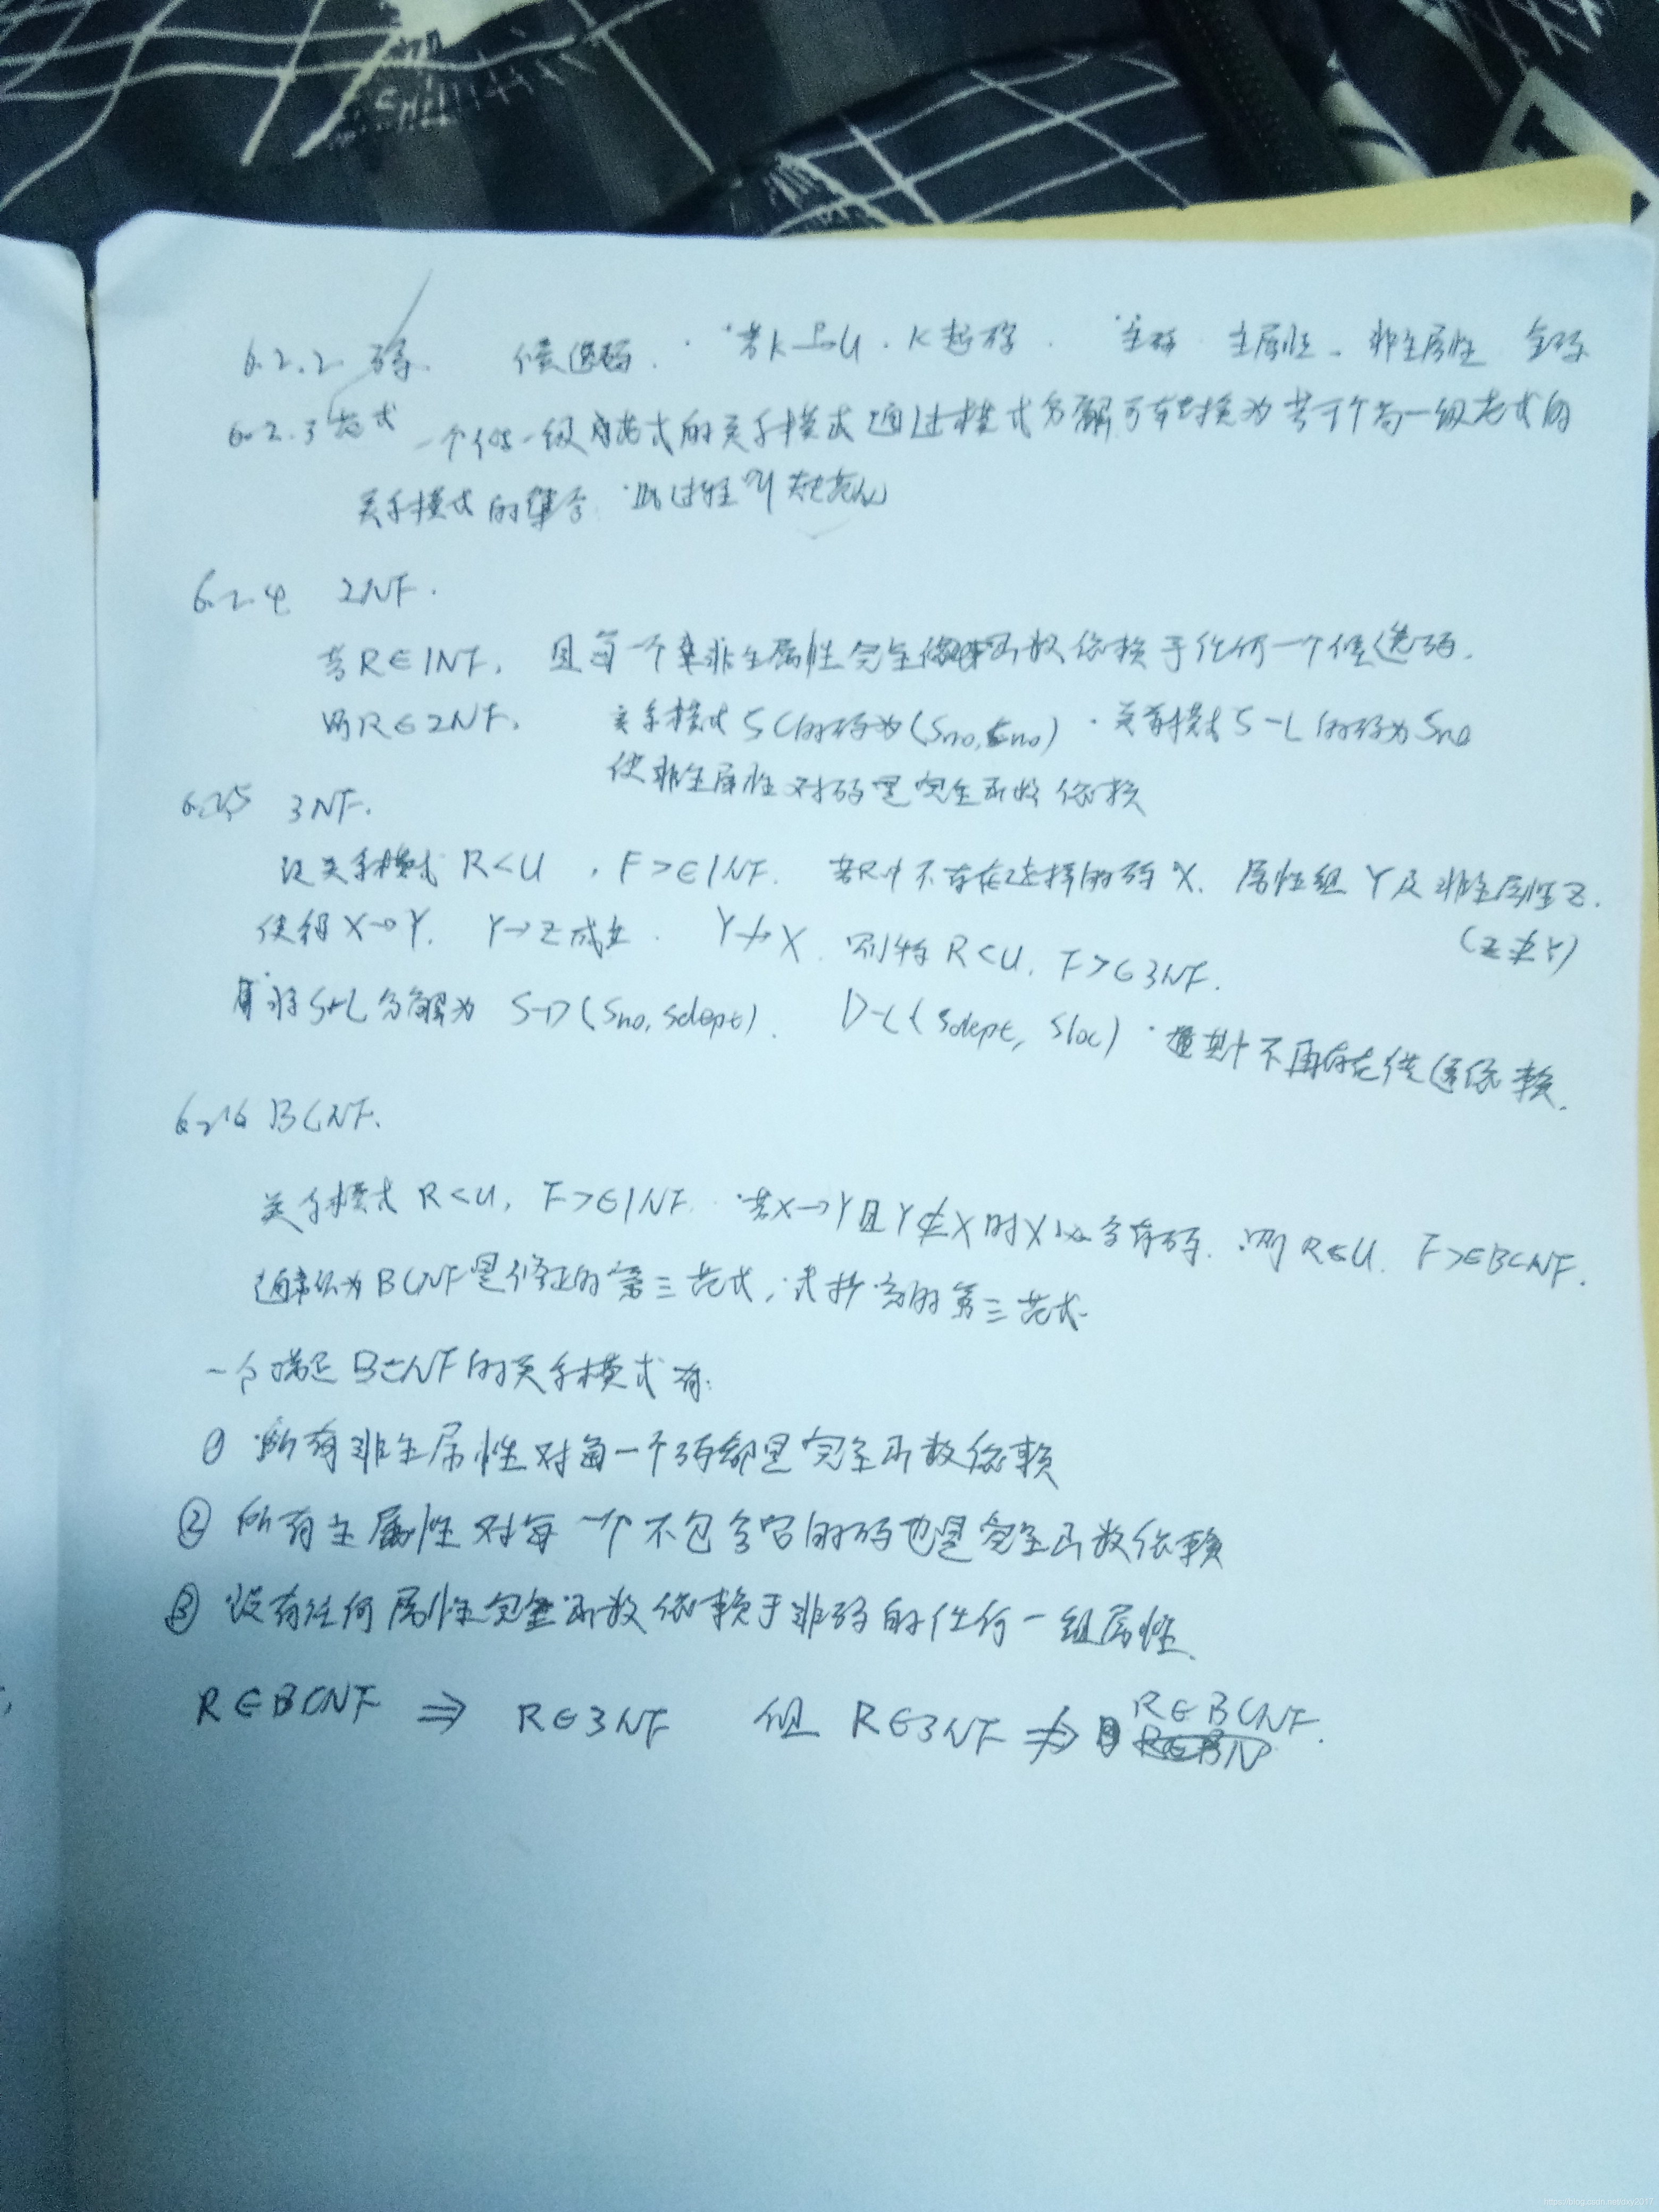 6.2.2 码. 候选码. 若K→U. K超码. 主码 主属性. 非主属性 全码
6.2.3 范式 一个低一级范式的关系模式通过模式分解可转换为若干个高一级范式的
关系模式的集合. 此过程叫规范化
6.2.4 2NF.
若R∈1NF, 且每一个非主属性完全函数依赖于任何一个候选码.
则R∈2NF. 关系模式SC的码为(Sno,Cno). 关系模式S-L的码为Sno
使非主属性对码是完全函数依赖
6.2.5 3NF.
设关系模式R<U, F>∈1NF. 若R中不存在这样的码X. 属性组Y及非主属性Z.
(Z⊄Y)
使得X→Y. Y→Z成立. Y↛X. 则称R<U. F>∈3NF.
将S-L分解为 S-D(Sno, Sdept). D-L(Sdept, Sloc). 其中不再存在传递依赖.
6.2.6 BCNF.
关系模式R<U, F>∈1NF. 若X→Y且Y⊄X时X必含有码. 则R<U. F>∈BCNF.
通常认为BCNF是修正的第三范式, 或扩充的第三范式.
一个满足BCNF的关系模式有:
① 所有非主属性对每一个码都是完全函数依赖
② 所有主属性对每一个不包含它的码也是完全函数依赖
③ 没有任何属性完全函数依赖于非码的任何一组属性.
R∈BCNF ⇒ R∈3NF 但 R∈3NF ⇏ R∈BCNF.
https://blog.csdn.net/dxy2017